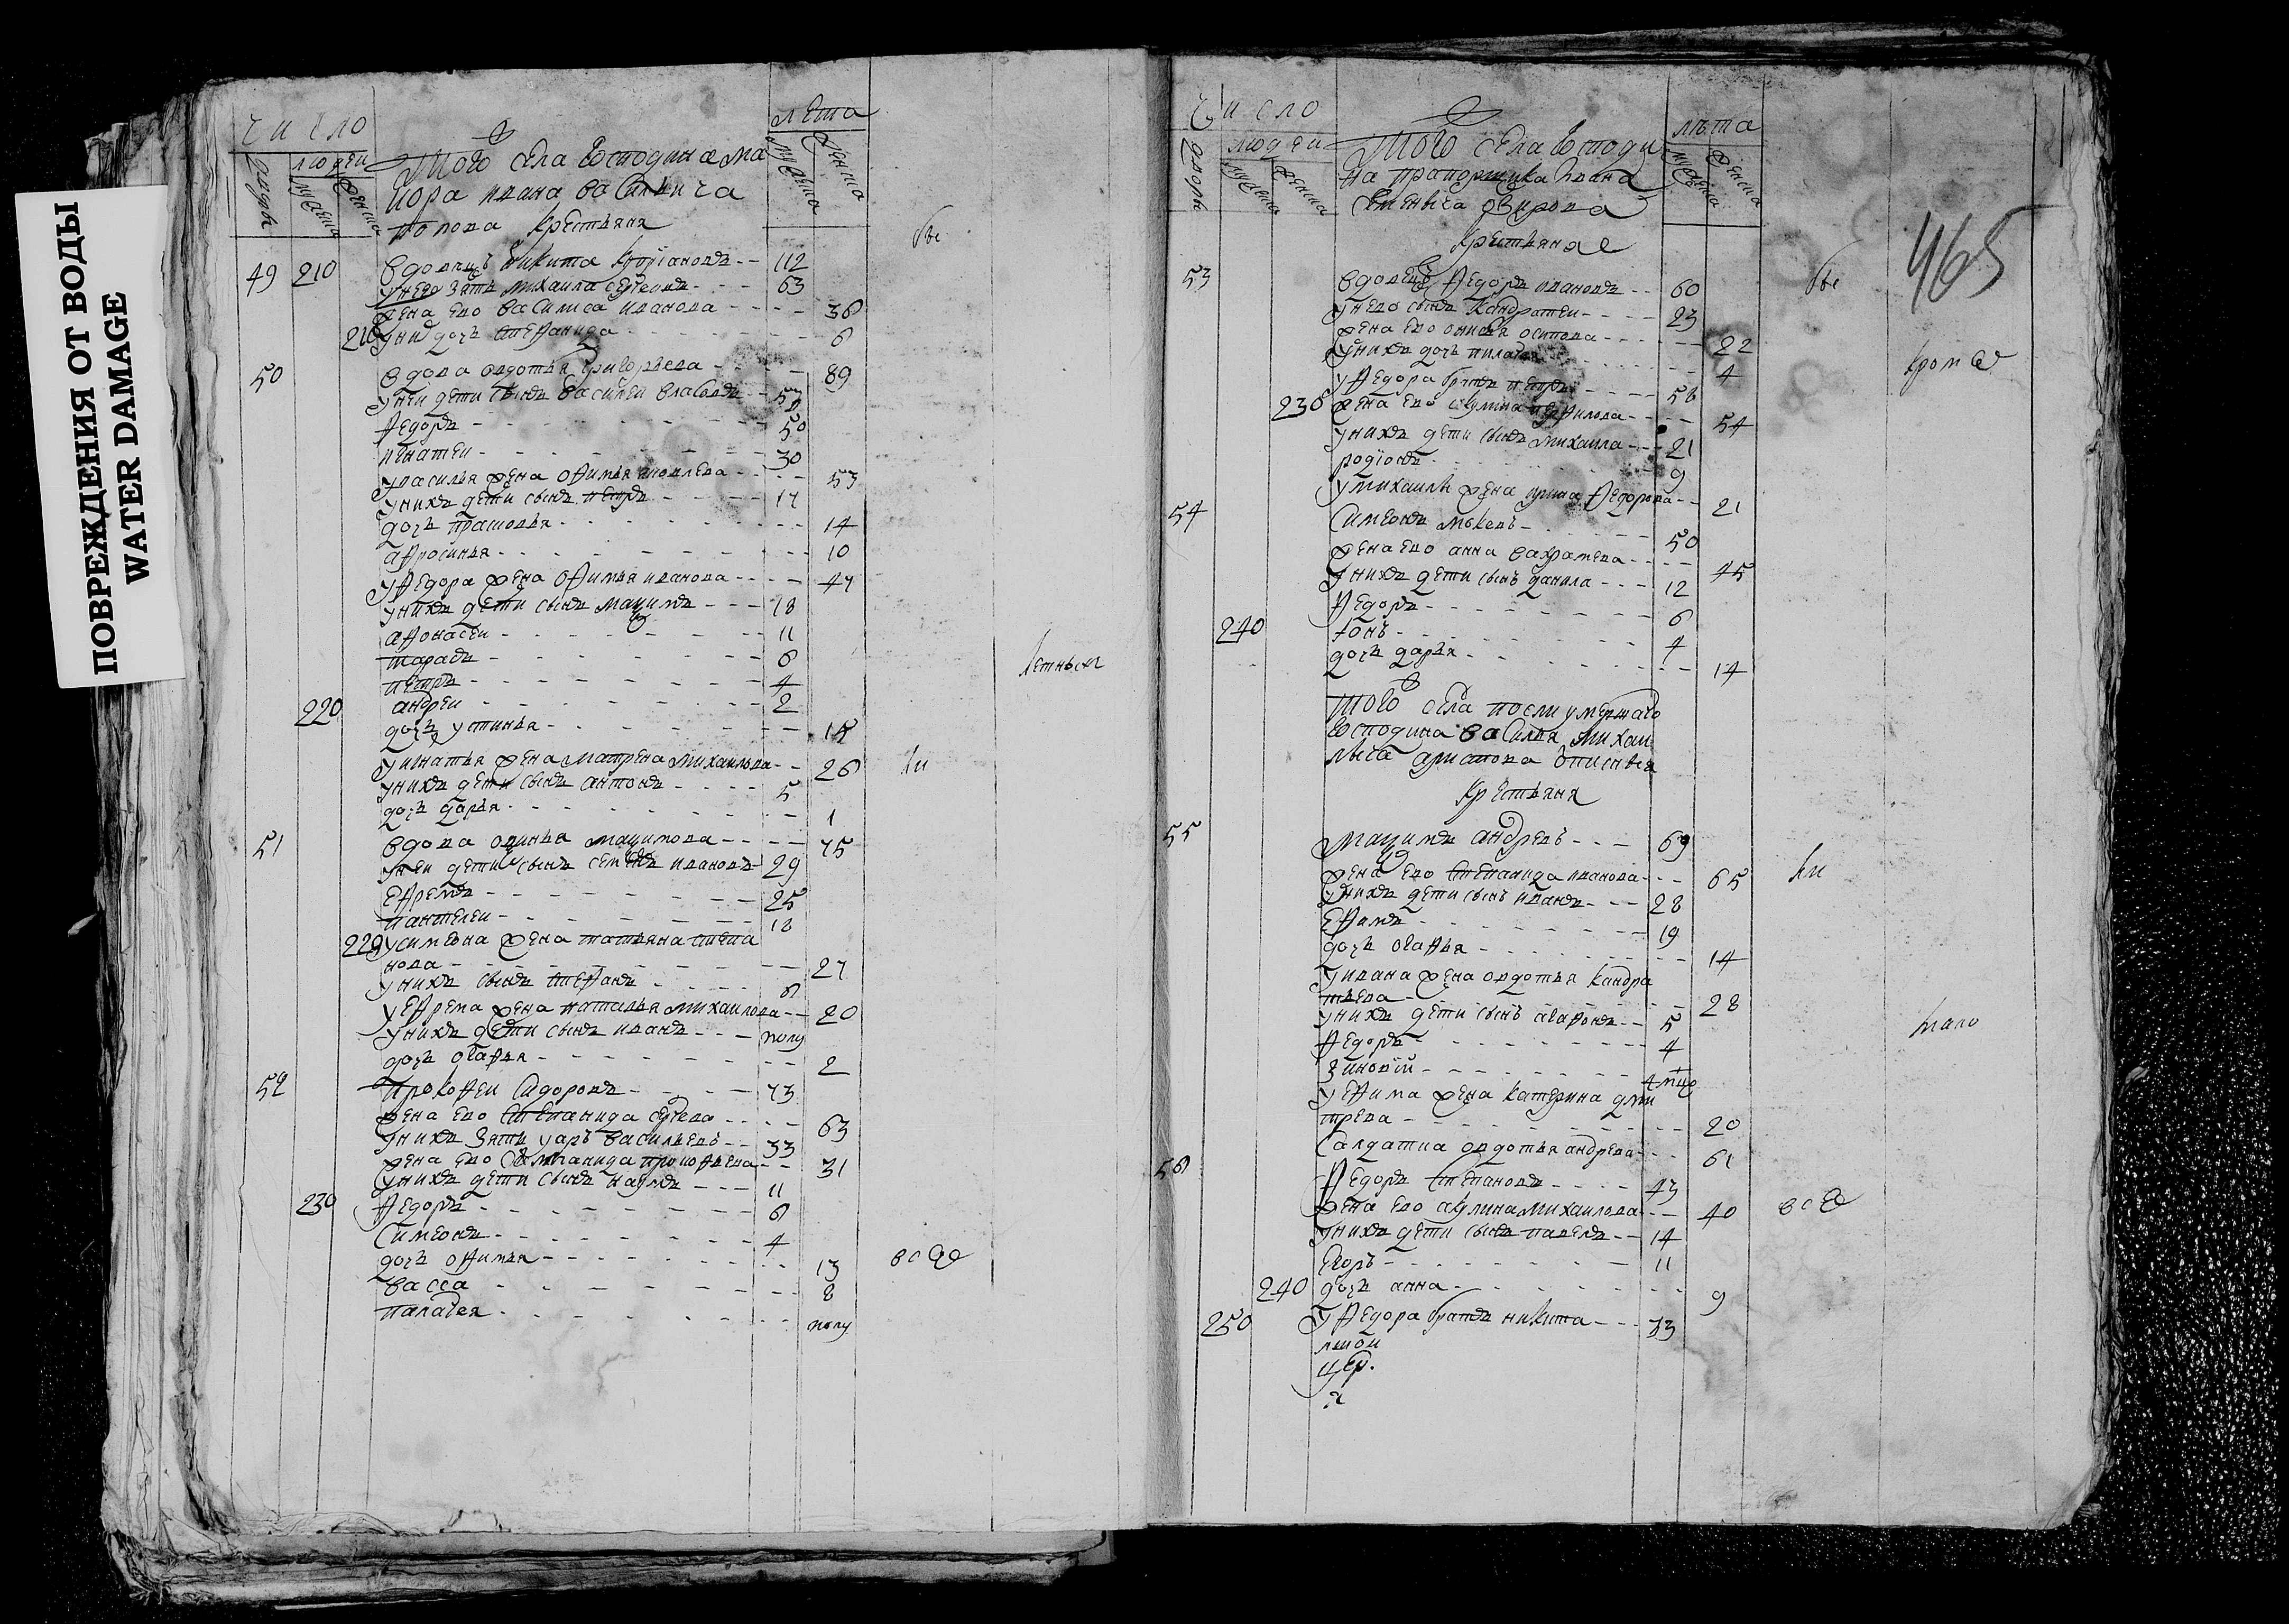 ПОВРЕЖДЕНИЯ ОТ ВОДЫ
WATER DAMAGE
число
лета
дворы
людеи
мужеска
женска
мужеска
женска
Того села господина ма
иора ивана василича
попова крестьяня
все
49 210 вдовецъ никита 112
у него зять михаила сергеивъ 63
жена ево василиса иванова 38
210 у ни дочь степанида 6
50 вдова овдотья григорьева 89
у неи дети сынъ василеи власовъ 57
федоръ 50
игнатеи 30
у василья жена офимья яковлева 53
у нихъ дети сынъ петръ 17
дочь прасковья 14
афросинья 10
у федора жена офимья иванова 47
у нихъ дети сынъ маѯимъ 18
афонасеи 11
тарасъ 6
петръ 4
220 андреи 2
дочь устинья 15
у игнатья жена матрена михаилова 26
у нихъ дети сынъ антонъ 5
дочь дарья 1
51 вдова маѯимова 75
у неи дети сынъ семенъ ивановъ 29
ефремъ 25
пантелеи 18
220 у симеона жена татьяна степа
нова 27
у нихъ сынъ стефанъ 6
у ефрема жена наталья михаилова 20
у нихъ дети сынъ иванъ полу
дочь огафья 2
52 прокофеи сидоровъ 73
жена ево степанида сергева 63
у нихъ зять уаръ васильевъ 33
жена ево степанида прокофьева 31
у нихъ дети сынъ наумъ 11
230 федоръ 6
симеонъ 4
дочь офимья 13
васса 8
палагея полу
ли
всѣ
число
лѣта
дворы
людеи
мужеска
женска
мужеска
женска
465
Того села господи
на прапорщика ивана
семеныча
крестьяня
все
кроме
53 вдовецъ федоръ ивановъ 60
у нево сынъ кандратеи 23
жена ево осипова 22
у нихъ дочь пилагея 4
у федора братъ петръ 58
230 жена ево акулина 54
у нихъ дети сынъ михаила 21
родїонъ 9
у михаилы жена ирина федорова 21
54 симеонъ 50
жена ево анна вахрамева 45
у нихъ дети сынъ данила 12
федоръ 6
240 4
дочь дарья 14
Того села посли умершаго
господина василья михаи
лыча
крестьяня
55 маѯимъ андревъ 69
жена ево степанида иванова 65
у нихъ дети сынъ иванъ 28
ефимъ 19
дочь огафья 14
у ивана жена овдотья кандра
тьева 28
у нихъ дети сынъ агафонъ 5
федоръ 4
зиновїи 4 мцо
у ефима жена катерина дми
трева 20
салдатка овдотья андрева 61
56 федоръ степановъ 43
жена ево акулина михаилова 40
у нихъ дети сынъ павелъ 14
егоръ 11
240 дочь анна 9
250 у федора братъ никита 33
ли
мало
всѣ